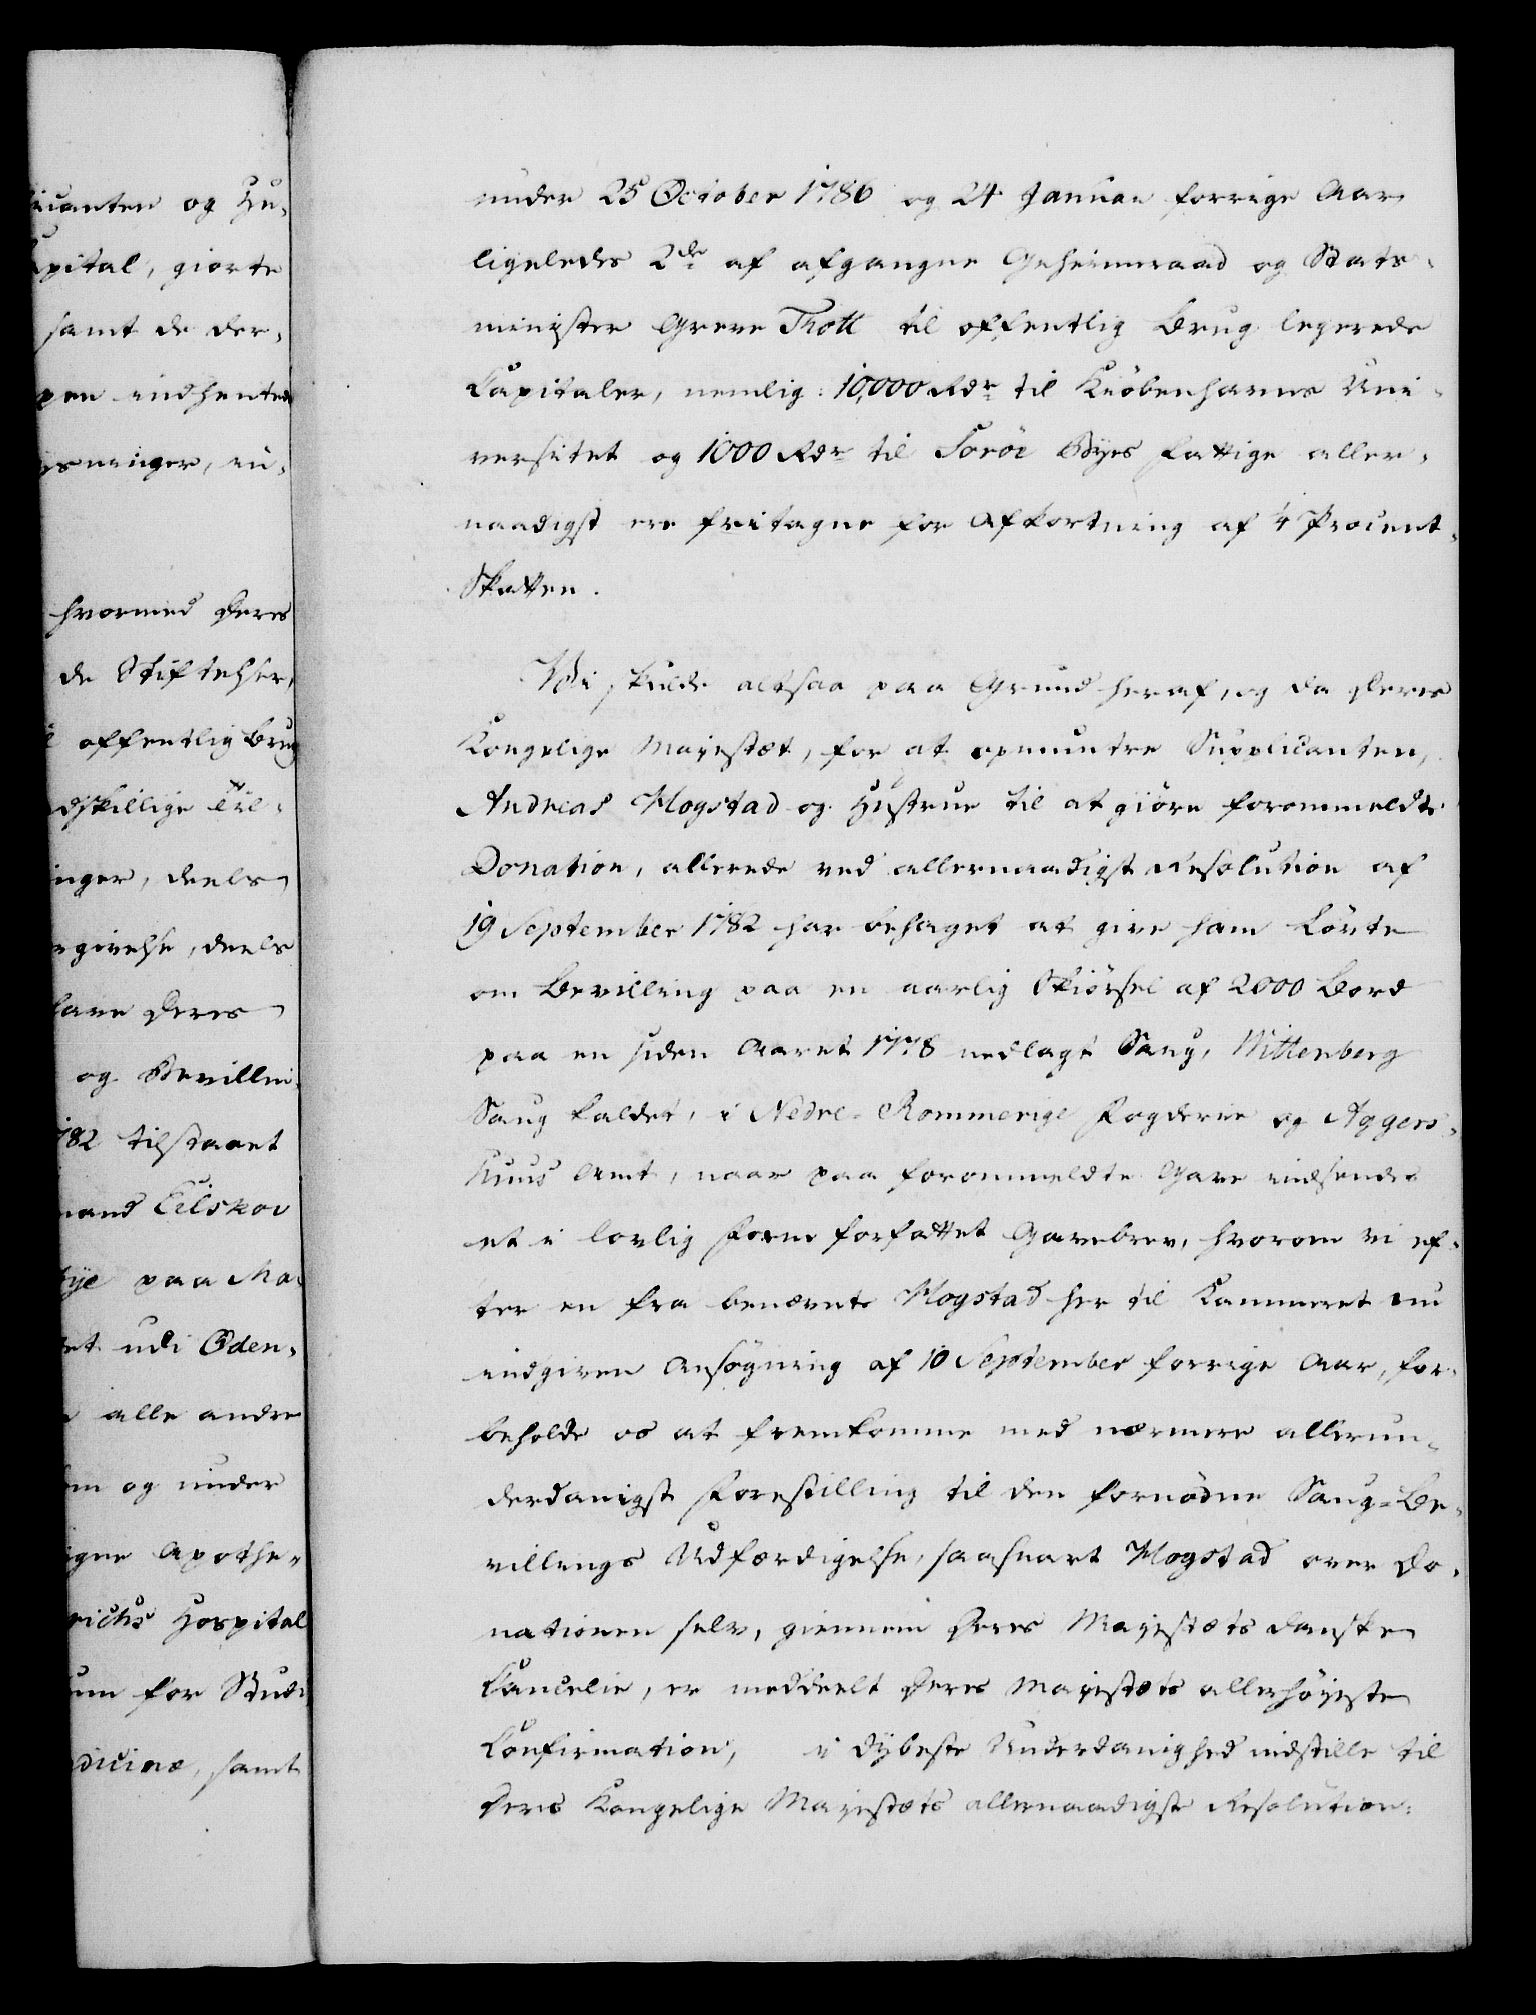 icanten og Hu-
pital, giorte
samt de der-
pen indhentede
ysninger, un-
hvormed Deres
de Stiftelser,
offentlig Brug
dskillige Til-
inger, deels
rgivelse, deels
have Deres
og Bevillin-
782 tilstaaet
mand Eilskov
tye paa Ma-
et udi Oden-
alle andre
em og under
igne Apothe-
richs Hospital
um for Stude
dicinæ, samt
under 25 October 1786 og 24 Januar forrige Aar
ligeledes 2de af afgangne Geheimeraad og Stats-
minister Greve Thott til offentlig Brug legerede
Capitaler, nemlig: 10,000 Rdr til Kiöbenhavns Uni-
versitet og 1000 Rdr til Soröe Byes Fattige aller-
naadigst ere fritagne for Afkortning af 1/4 Procent-
Skatten.
Vi skulde altsaa paa Grund heraf, og da Deres
Kongelige Mayestæt, for at opmuntre Supplicanten,
Andreas Mogstad og Hustrue til at giöre forommeldte
Donation, allerede ved allernaadigst Resolution af
19 September 1782 har behaget at give ham Lövte
om Bevilling paa en aarlig Skiörsel af 2000 Bord
paa en siden Aaret 1778 nedlagt Saug, Wittenberg
Saug kaldet, i Nedre-Rommerige Fogderie og Aggers-
huus Amt, naar paa forommeldte Gave indsendes
et i lovlig Form forfattet Gavebrev, hvorom vi ef-
ter en fra benævnte Mogstad her til Kammeret nu
indgiven Ansøgning af 10 September forrige Aar, for-
beholde os at fremkomme med nærmere allerun-
derdanigst Forestilling til den fornödne Saug-Be-
villings Udfærdigelse, saasnart Mogstad over Do-
nationen selv, giennem Deres Mayestæts danske
Cancelie, er meddeelt Deres Mayestæts allerhöyeste
Confirmation, i dybeste Underdanighed indstille til
Deres Kongelige Mayestæts allernaadigste Resolution: